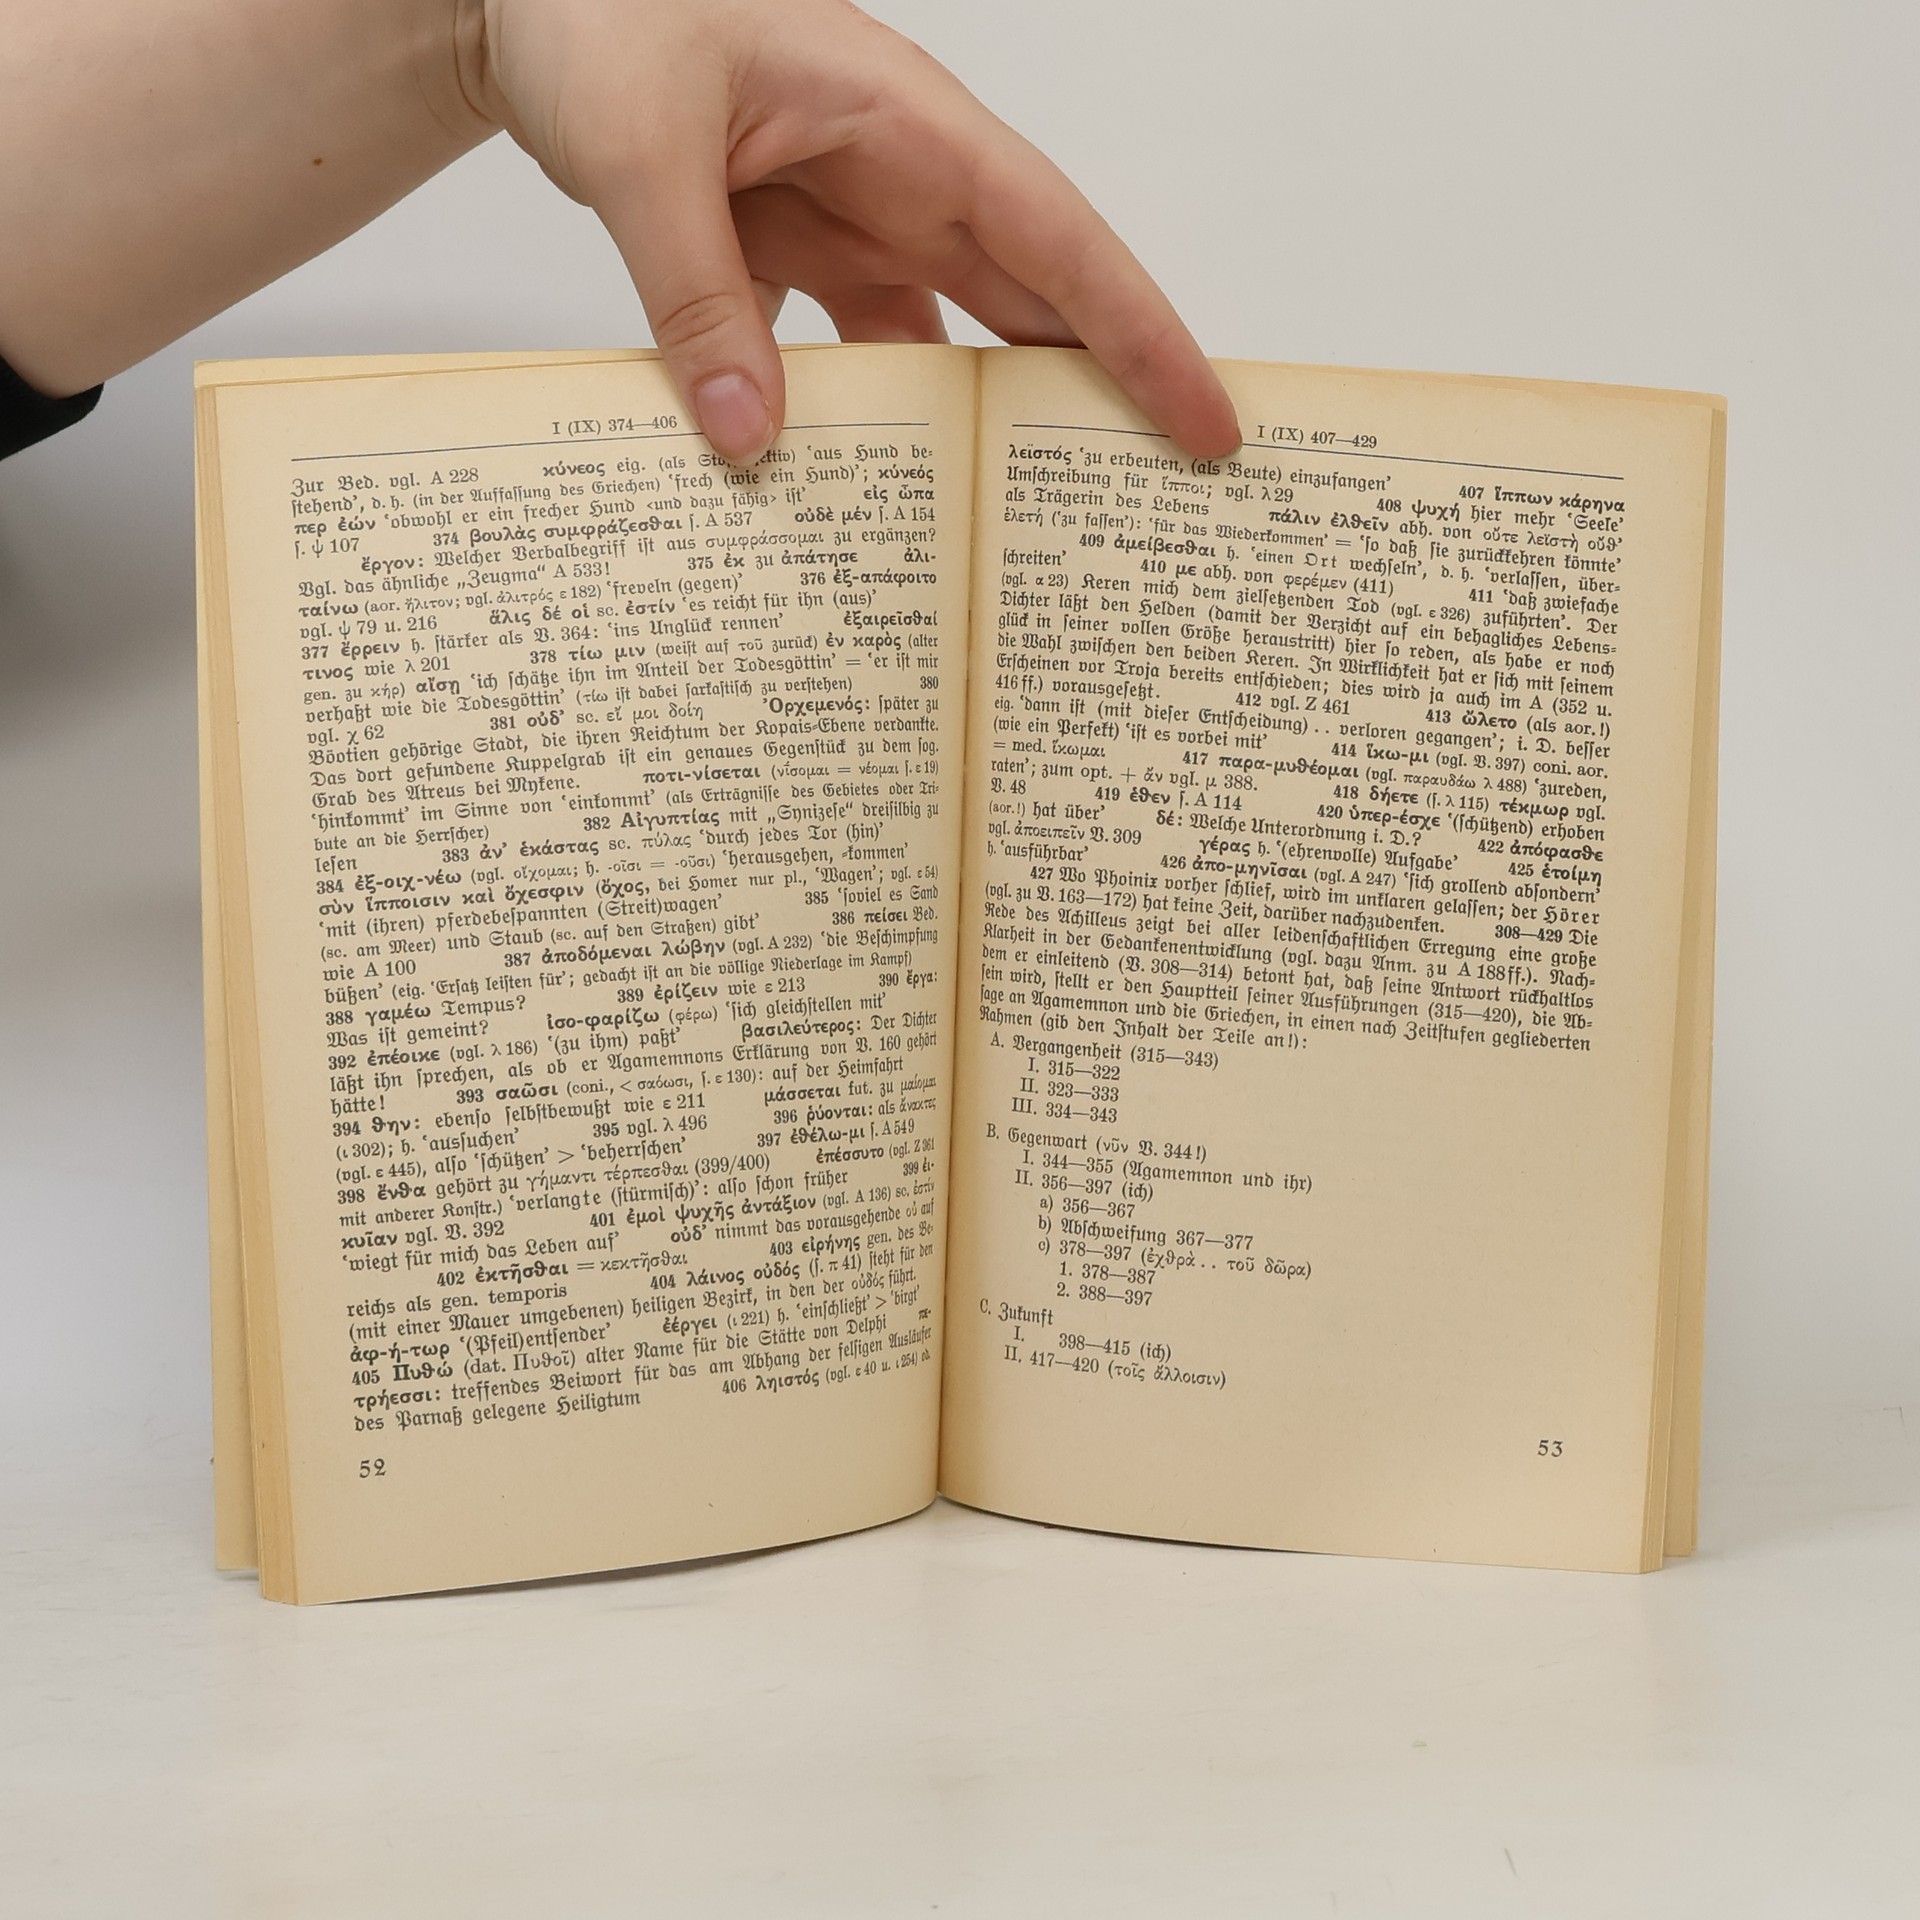 I (IX) 374—406
Zur Bed. vgl. A 228 κύνεος eig. (als ‘aus Hund be-
stehend’, d. h. (in der Auffassung des Griechen) ‘frech (wie ein Hund)’; κύνεός
περ ἐών ‘obwohl er ein frecher Hund <und dazu fähig> ist’ εἰς ὦπα
s. ψ 107 374 βουλὰς συμφράζεσθαι s. A 537 οὐδὲ μέν s. A 154
ἔργον: Welcher Verbalbegriff ist aus συμφράσσομαι zu ergänzen?
Vgl. das ähnliche „Zeugma“ A 533! 375 ἐκ zu ἀπάτησε ἀλι-
ταίνω (aor. ἤλιτον; vgl. ἀλιτρός ε 182) ‘freveln (gegen)’ 376 ἐξ-απάφοιτο
vgl. ψ 79 u. 216 ἅλις δέ οἱ sc. ἐστίν ‘es reicht für ihn (aus)’
377 ἔρρειν h. stärker als V. 364: ‘ins Unglück rennen’ ἐξαιρεῖσθαί
τινος wie λ 201 378 τίω μιν (weist auf τοῦ zurück) ἐν καρὸς (alter
gen. zu κήρ) αἴσῃ ‘ich schätze ihn im Anteil der Todesgöttin’ = ‘er ist mir
verhaßt wie die Todesgöttin’ (τίω ist dabei sarkastisch zu verstehen) 380
vgl. χ 62 381 οὐδ’ sc. εἴ μοι δοίη Ὀρχεμενός: später zu
Böotien gehörige Stadt, die ihren Reichtum der Kopais-Ebene verdankte.
Das dort gefundene Kuppelgrab ist ein genaues Gegenstück zu dem sog.
Grab des Atreus bei Mykene. ποτι-νίσεται (νίσομαι = νέομαι s. ε 19)
‘hinkommt’ im Sinne von ‘einkommt’ (als Erträgnisse des Gebietes oder Tri-
bute an die Herrscher) 382 Αἰγυπτίας mit „Synizese“ dreisilbig zu
lesen 383 ἀν’ ἑκάστας sc. πύλας ‘durch jedes Tor (hin)’
384 ἐξ-οιχ-νέω (vgl. οἴχομαι; h. -οῖσι = -οῦσι) ‘herausgehen, -kommen’
σὺν ἵπποισιν καὶ ὄχεσφιν (ὄχος, bei Homer nur pl., ‘Wagen’; vgl. ε 54)
‘mit (ihren) pferdebespannten (Streit)wagen’ 385 ‘soviel es Sand
(sc. am Meer) und Staub (sc. auf den Straßen) gibt’ 386 πείσει Bed.
wie A 100 387 ἀποδόμεναι λώβην (vgl. A 232) ‘die Beschimpfung
büßen’ (eig. ‘Ersatz leisten für’; gedacht ist an die völlige Niederlage im Kampf)
388 γαμέω Tempus? 389 ἐρίζειν wie ε 213 390 ἔργα:
Was ist gemeint? ἰσο-φαρίζω (φέρω) ‘sich gleichstellen mit’
392 ἐπέοικε (vgl. λ 186) ‘(zu ihm) paßt’ βασιλεύτερος: Der Dichter
läßt ihn sprechen, als ob er Agamemnons Erklärung von V. 160 gehört
hätte! 393 σαῶσι (coni., < σαόωσι, s. ε 130): auf der Heimfahrt
394 θην: ebenso selbstbewußt wie ε 211 μάσσεται fut. zu μαίομαι
(ι 302); h. ‘aussuchen’ 395 vgl. λ 496 396 ῥύονται: als ἄνακτες
(vgl. ε 445), also ‘schützen’ > ‘beherrschen’ 397 ἐθέλω-μι s. A 549
398 ἔνθα gehört zu γήμαντι τέρπεσθαι (399/400) ἐπέσσυτο (vgl. Z 361
mit anderer Konstr.) ‘verlangte (stürmisch)’: also schon früher 399 ἐι-
κυῖαν vgl. V. 392 401 ἐμοὶ ψυχῆς ἀντάξιον (vgl. A 136) sc. ἐστίν
‘wiegt für mich das Leben auf’ οὐδ’ nimmt das vorausgehende οὐ auf
402 ἐκτῆσθαι = κεκτῆσθαι 403 εἰρήνης gen. des Be-
reichs als gen. temporis 404 λάινος οὐδός (s. π 41) steht für den
(mit einer Mauer umgebenen) heiligen Bezirk, in den der οὐδός führt.
ἀφ-ή-τωρ ‘(Pfeil)entsender’ ἐέργει (ι 221) h. ‘einschließt’ > ‘birgt’
405 Πυθώ (dat. Πυθοῖ) alter Name für die Stätte von Delphi πε-
τρήεσσι: treffendes Beiwort für das am Abhang der felsigen Ausläufer
des Parnaß gelegene Heiligtum 406 ληιστός (vgl. ε 40 u. ι 254) od.
52
I (IX) 407—429
λεϊστός ‘zu erbeuten, (als Beute) einzufangen’ 407 ἵππων κάρηνα
Umschreibung für ἵπποι; vgl. λ 29 408 ψυχή hier mehr ‘Seele’
als Trägerin des Lebens πάλιν ἐλθεῖν abh. von οὔτε λεϊστὴ οὔθ’
ἑλετή (‘zu fassen’): ‘für das Wiederkommen’ = ‘so daß sie zurückkehren könnte’
409 ἀμείβεσθαι h. ‘einen Ort wechseln’, d. h. ‘verlassen, über-
schreiten’ 410 με abh. von φερέμεν (411) 411 ‘daß zwiefache
(vgl. α 23) Keren mich dem zielsetzenden Tod (vgl. ε 326) zuführten’. Der
Dichter läßt den Helden (damit der Verzicht auf ein behagliches Lebens-
glück in seiner vollen Größe heraustritt) hier so reden, als habe er noch
die Wahl zwischen den beiden Keren. In Wirklichkeit hat er sich mit seinem
Erscheinen vor Troja bereits entschieden; dies wird ja auch im A (352 u.
416 ff.) vorausgesetzt. 412 vgl. Z 461 413 ὤλετο (als aor.!)
eig. ‘dann ist (mit dieser Entscheidung) . . verloren gegangen’; i. D. besser
(wie ein Perfekt) ‘ist es vorbei mit’ 414 ἵκω-μι (vgl. V. 397) coni. aor.
= med. ἵκωμαι 417 παρα-μυθέομαι (vgl. παραυδάω λ 488) ‘zureden,
raten’; zum opt. + ἄν vgl. μ 388. 418 δήετε (s. λ 115) τέκμωρ vgl.
V. 48 419 ἑθεν s. A 114 420 ὑπερ-έσχε ‘(schützend) erhoben
(aor.!) hat über’ δέ: Welche Unterordnung i. D.? 422 ἀπόφασθε
vgl. ἀποειπεῖν V. 309 γέρας h. ‘(ehrenvolle) Aufgabe’ 425 ἑτοίμη
h. ‘ausführbar’ 426 ἀπο-μηνῖσαι (vgl. A 247) ‘sich grollend absondern’
427 Wo Phoinix vorher schlief, wird im unklaren gelassen; der Hörer
(vgl. zu V. 163—172) hat keine Zeit, darüber nachzudenken. 308—429 Die
Rede des Achilleus zeigt bei aller leidenschaftlichen Erregung eine große
Klarheit in der Gedankenentwicklung (vgl. dazu Anm. zu A 188 ff.). Nach-
dem er einleitend (V. 308—314) betont hat, daß seine Antwort rückhaltlos
sein wird, stellt er den Hauptteil seiner Ausführungen (315—420), die Ab-
sage an Agamemnon und die Griechen, in einen nach Zeitstufen gegliederten
Rahmen (gib den Inhalt der Teile an!):
A. Vergangenheit (315—343)
I. 315—322
II. 323—333
III. 334—343
B. Gegenwart (νῦν V. 344!)
I. 344—355 (Agamemnon und ihr)
II. 356—397 (ich)
a) 356—367
b) Abschweifung 367—377
c) 378—397 (ἐχθρὰ . . τοῦ δῶρα)
1. 378—387
2. 388—397
C. Zukunft
I. 398—415 (ich)
II. 417—420 (τοῖς ἄλλοισιν)
53